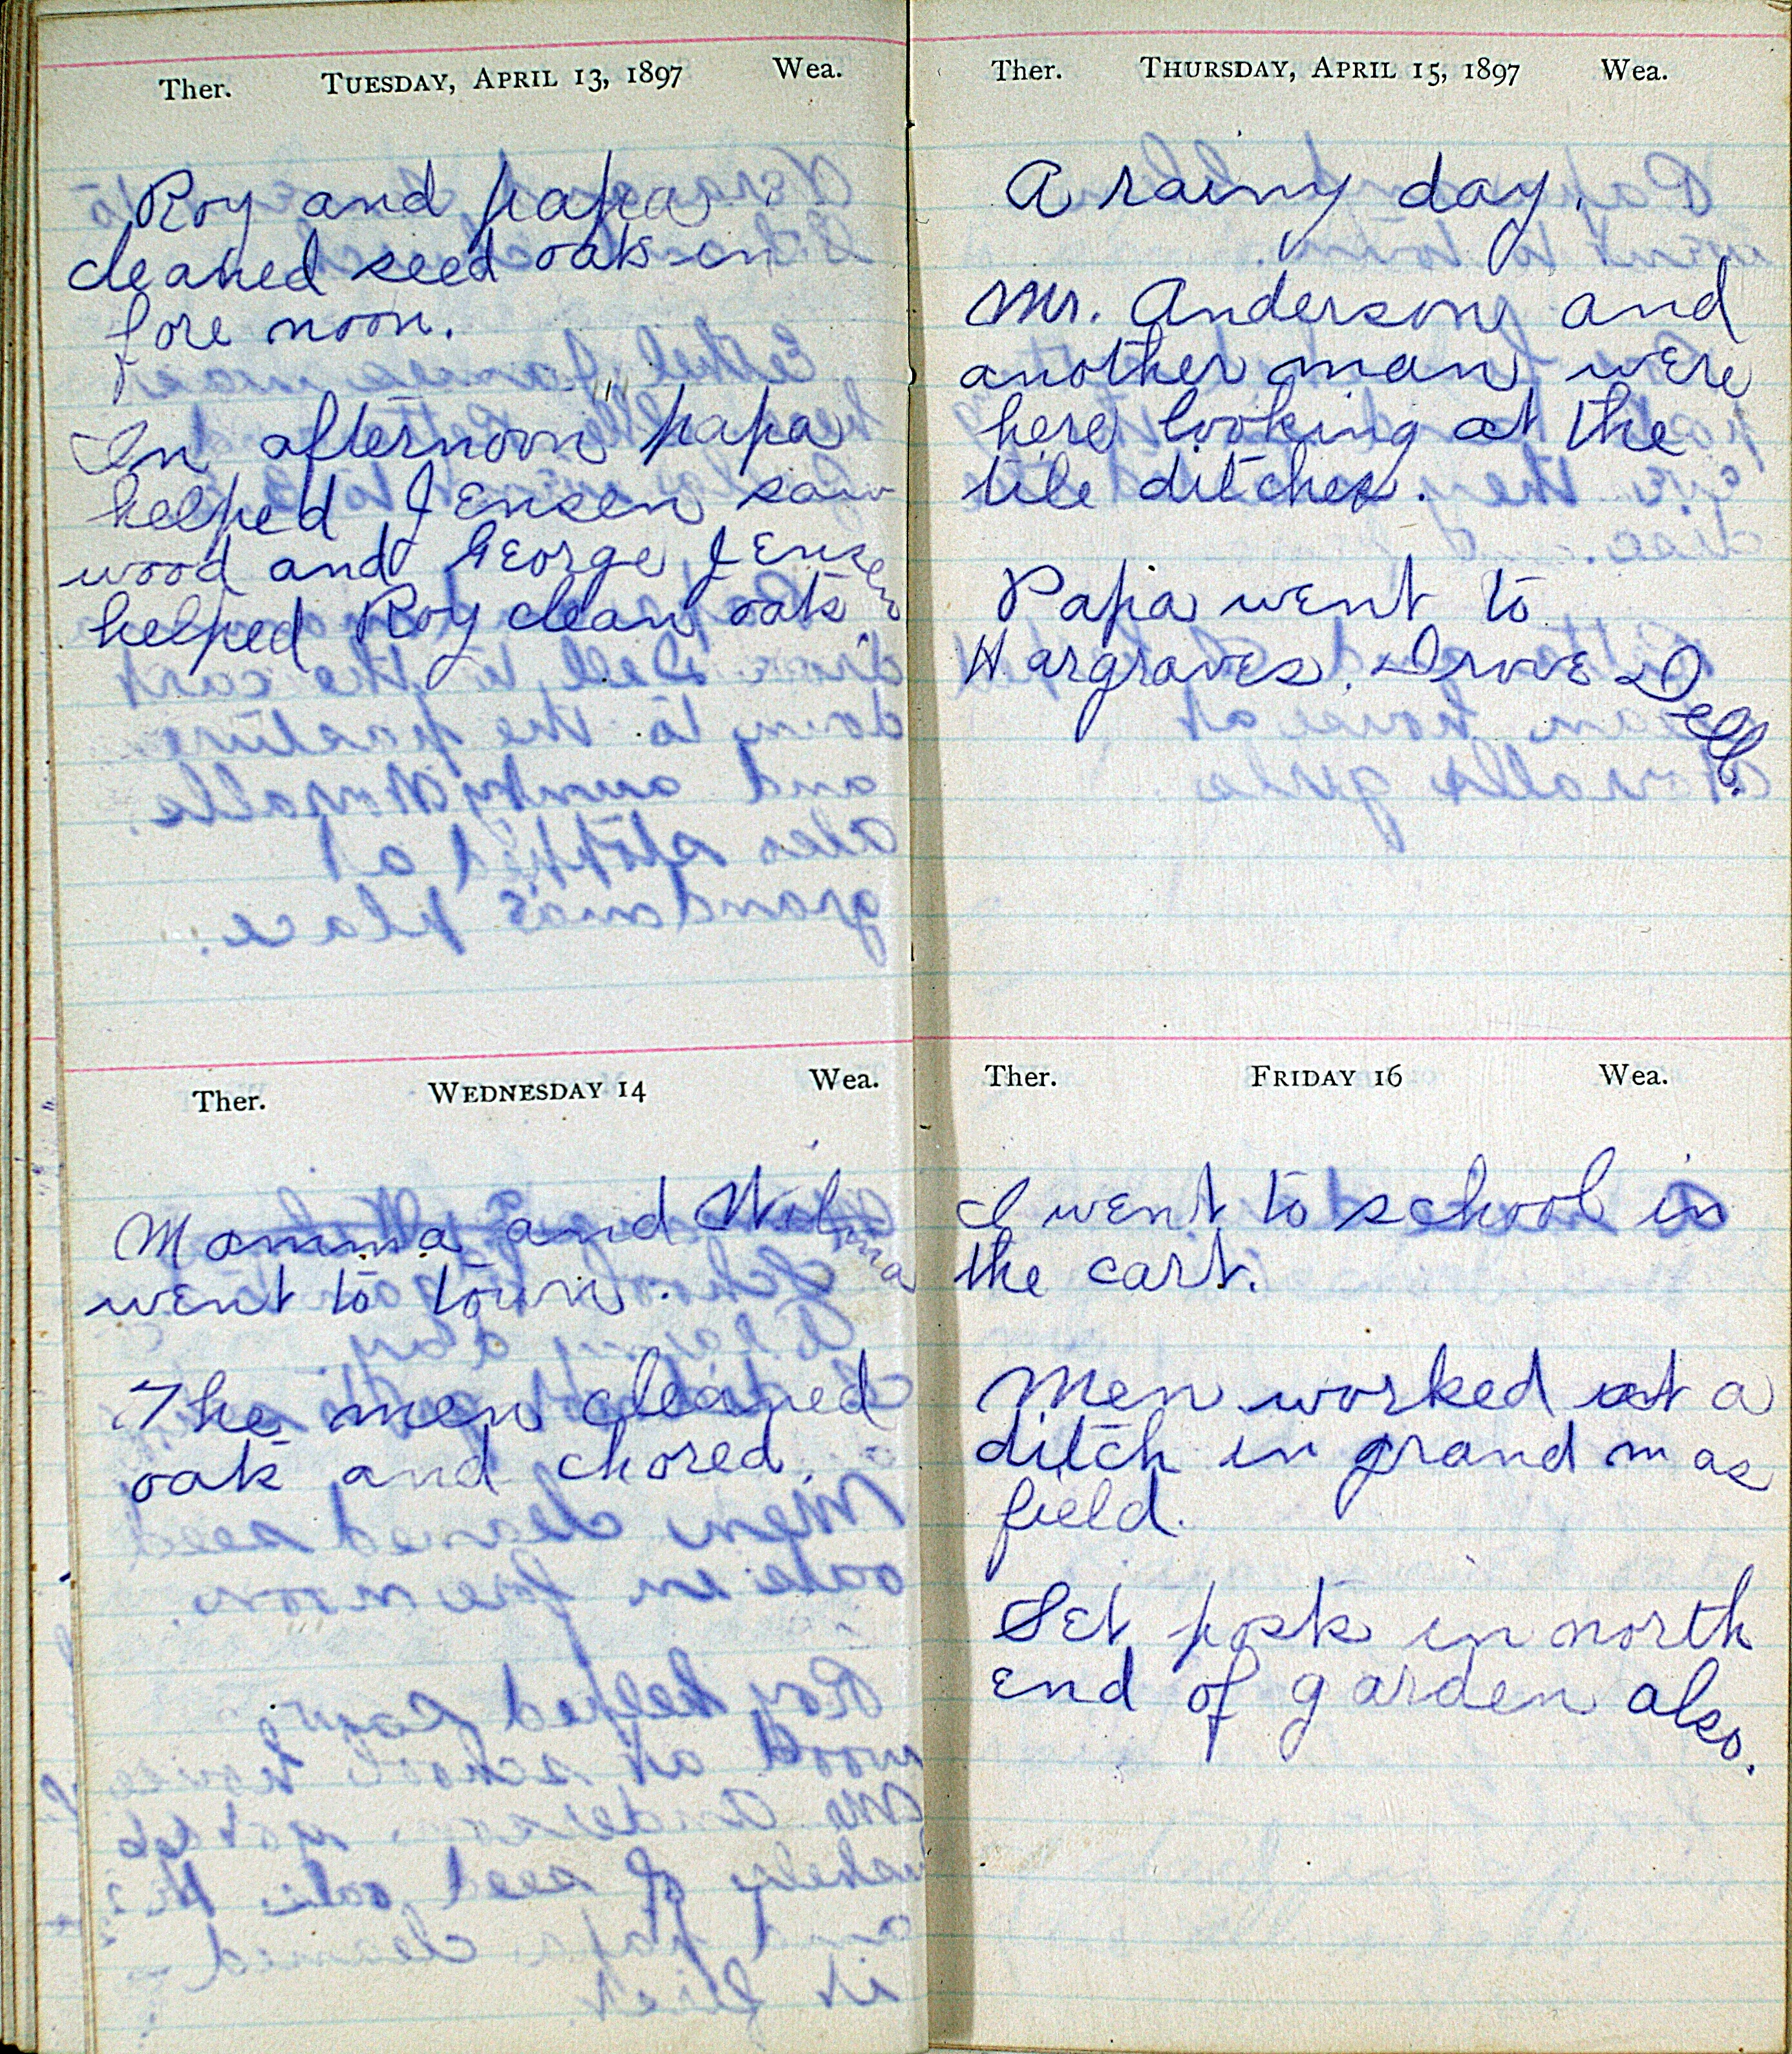 Ther. TUESDAY, APRIL 13, 1897 Wea.
Roy and papa
cleaned seed oats in
fore noon.
In afternoon papa
helped Jensen saw
wood and George Jensen
helped Roy clean oats
Ther. WEDNESDAY 14 Wea.
Mamma and Wilma
went to town.
The men cleaned
oats and chored.
Ther. THURSDAY, APRIL 15, 1897 Wea.
A rainy day.
Mr. Anderson and
another man were
here looking at the
tile ditches.
Papa went to
Hargraves. Drove Dell.
Ther. FRIDAY 16 Wea.
I went to school in
the cart.
Men worked at a
ditch in grandmas
field.
Set posts in north
end of garden also.